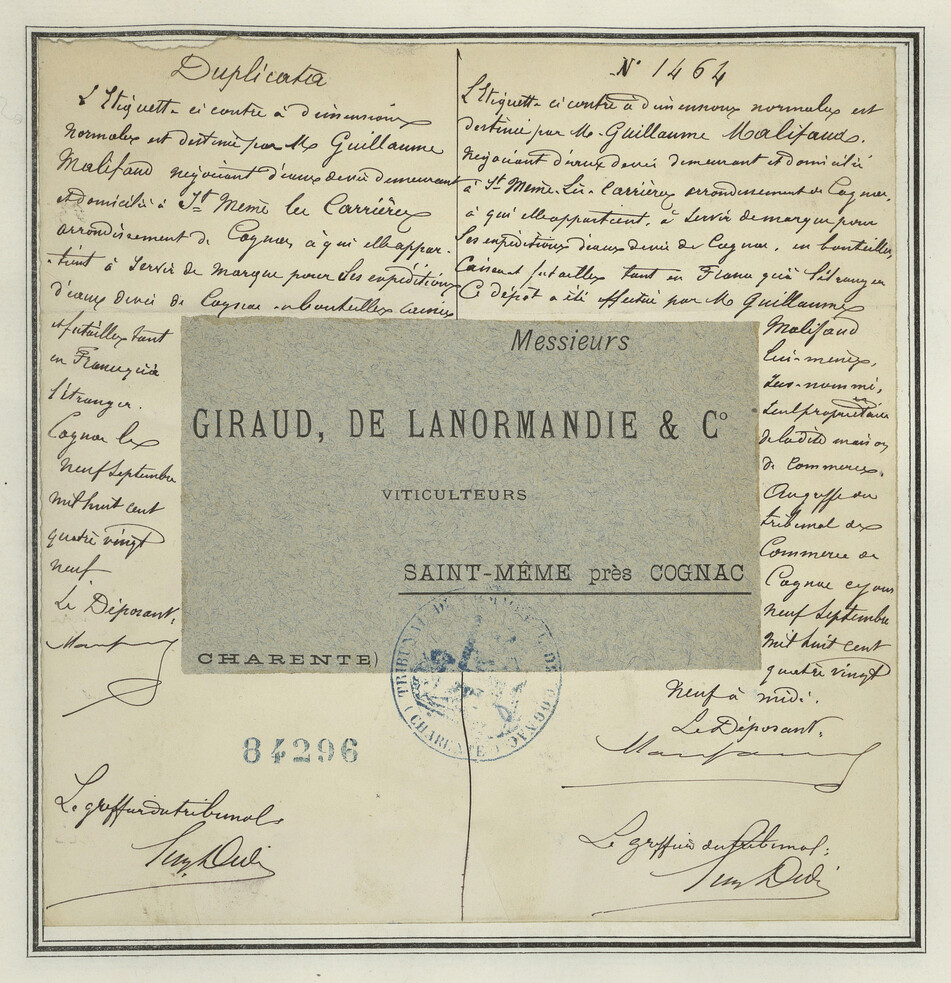 Duplicata
L'Etiquette ci contre à dimensions
normales est destinée par Mr Guillaume
Malifaud négociant d'eaux de vie demeurant
et domicilié à St Meme les Carrières
arrondissement de Cognac, à qui elle appar-
-tient à servir de marque pour ses expéditions
d'eaux de vie de Cognac en bouteilles caisses
et futailles tant
en France qu'à
l'étranger.
Cognac le
neuf Septembre
mil huit cent
quatre vingt
neuf
Le Déposant,
84296
Le greffier du tribunal
N° 1464
L'Etiquette ci contre à dimensions normales est
destinée par Mr Guillaume Malifaud.
négociant d'eaux de vie demeurant et domicilié
à St Meme-les-Carrières arrondissement de Cognac,
à qui elle appartient, à servir de marque pour
ses expéditions d'eaux de vie de Cognac, en bouteilles,
Caisses et futailles tant en France qu'à l'étranger
Ce dépôt a été effectué par Mr Guillaume
Malifaud
lui-même,
sus-nommé,
seul propriétaire
de la dite maison
de Commerce.
Au greffe du
tribunal de
Commerce de
Cognac ce jour
neuf Septembre
mil huit cent
quatre vingt
neuf à midi.
Le Déposant,
Le greffier du tribunal,
Messieurs
GIRAUD, DE LANORMANDIE & Co
VITICULTEURS
SAINT-MÊME près COGNAC
CHARENTE)
TRIBUNAL DE COMMERCE DE COGNAC (CHARENTE)